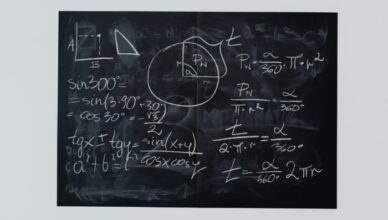 A
B
r
P_w
α
r
t
sin300°=
=sin(3·90°+30°)
=cos30°=-√3/2
tgx±tgy=sin(x+y)/cosxcosy
a²+b²=c²
P_w=α/360°·π·r²
P_w/π·r²=α/360°
t/2·π·r=α/360°
t=α/360° 2πr